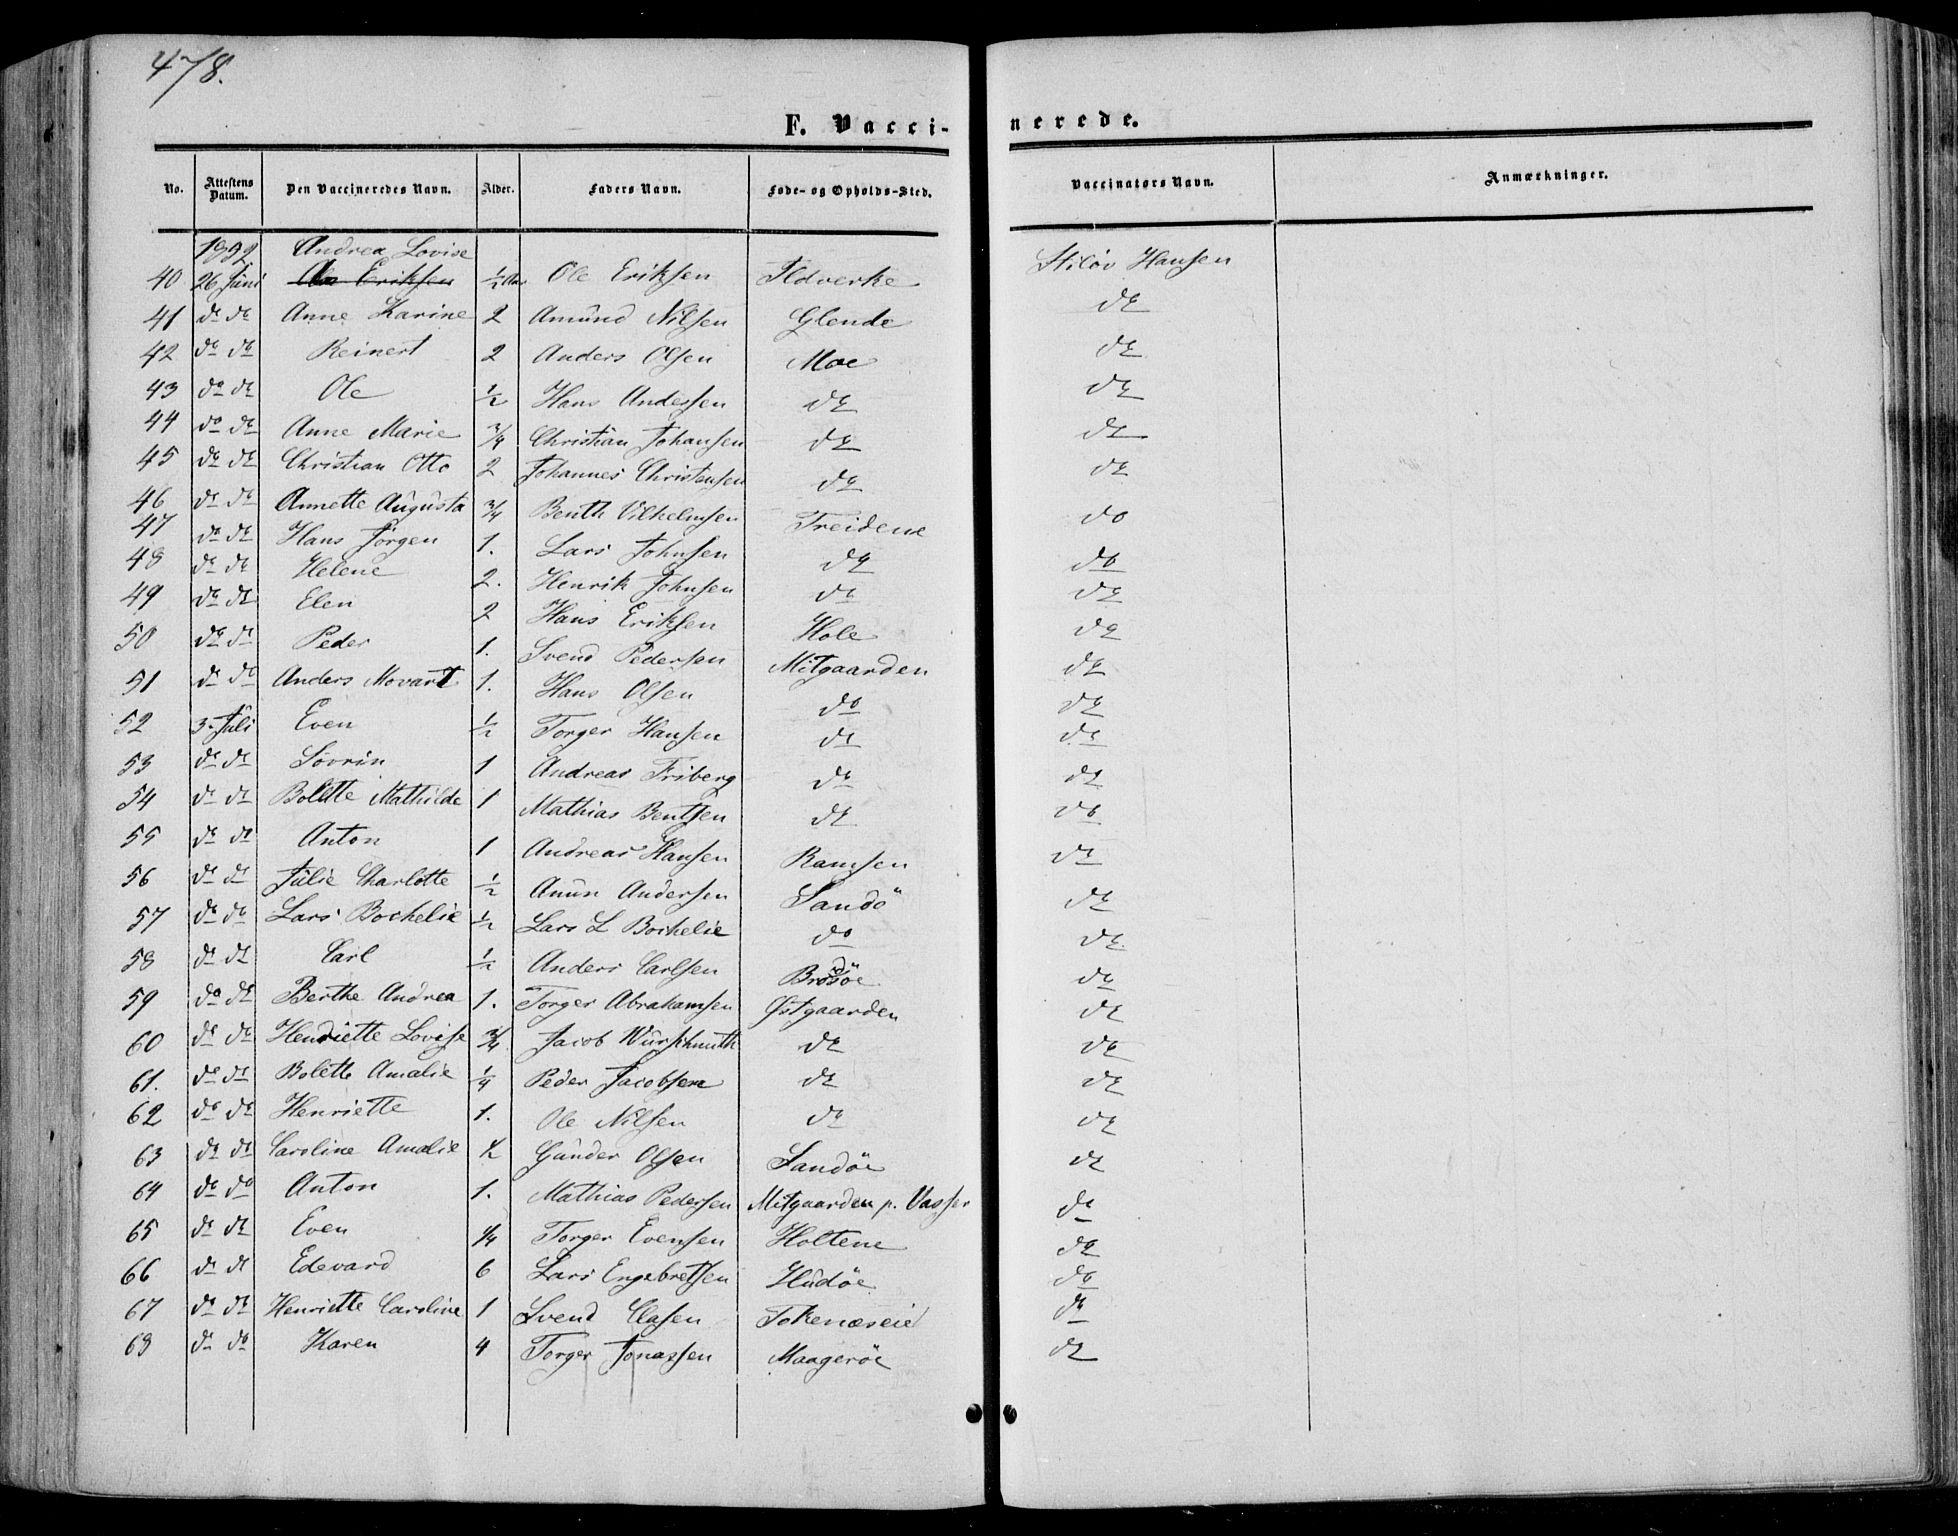 478.
F. Vaccinerede.
No. Attestens Datum. Den Vaccineredes Navn. Alder. Faders Navn. Føde- og Opholds-Sted. Vaccinators Navn. Anmærkninger.
Andrea Lovise
40 26 Juni Eriksen 1/2 Ole Eriksen Ildverke Hansen
41 do do Anne Karine 2 Amund Nilsen Glende do
42 do do Reinert 2 Anders Olsen Moe do
43 do do Ole 1/2 Hans Andersen do do
44 do do Anne Marie 3/4 Christian Johansen do do
45 do do Christian Otto 2 Johannes Christensen do do
46 do do Annette Augusta 3/4 Benth Vilhelmsen Treidene do
47 do do Hans Jørgen 1. Lars Johnsen do do
48 do do Helene 2. Henrik Johnsen do do
49 do do Elen 2 Hans Eriksen Hole do
50 do do Peder 1. Svend Pedersen Mitgaarden do
51 do do Anders Movart 1. Hans Olsen do do
52 3. Juli Even 1/2 Torger Hansen do do
53 do do Søvrin 1 Andreas Friberg do do
54 do do Bolette Mathilde 1 Mathias Bentsen do do
55 do do Anton 1 Andreas Hansen Ramsen do
56 do do Julie Charlotte 1/2 Anun Andersen Sandö do
57 do do Lars Bochelie 1/2 Lars L Bochelie do do
58 do do Carl 1/2 Anders Carlsen do
59 do do Berthe Andrea 1. Torger Abrahamsen Østgaarden do
60 do do Henriette Lovise 3/4 Jacob Wurschmith do do
61. do do Bolette Amalie 1/4 Peder Jacobsen do do
62 do do Henriette 1. Ole Nilsen do do
63 do do Caroline Amalie 1/2 Gunder Olsen Sandöe do
64 do do Anton 1. Mathias Pedersen Mitgaarden p. Vasser do
65 do do Even 1/4 Torger Evensen Holtene do
66 do do Edevard 6 Lars Engebretsen Hudöe do
67 do do Henriette Caroline 1 Svend Clasen Tokenæseie do
68 do do Karen 4 Torger Jonassen Maagerøe do